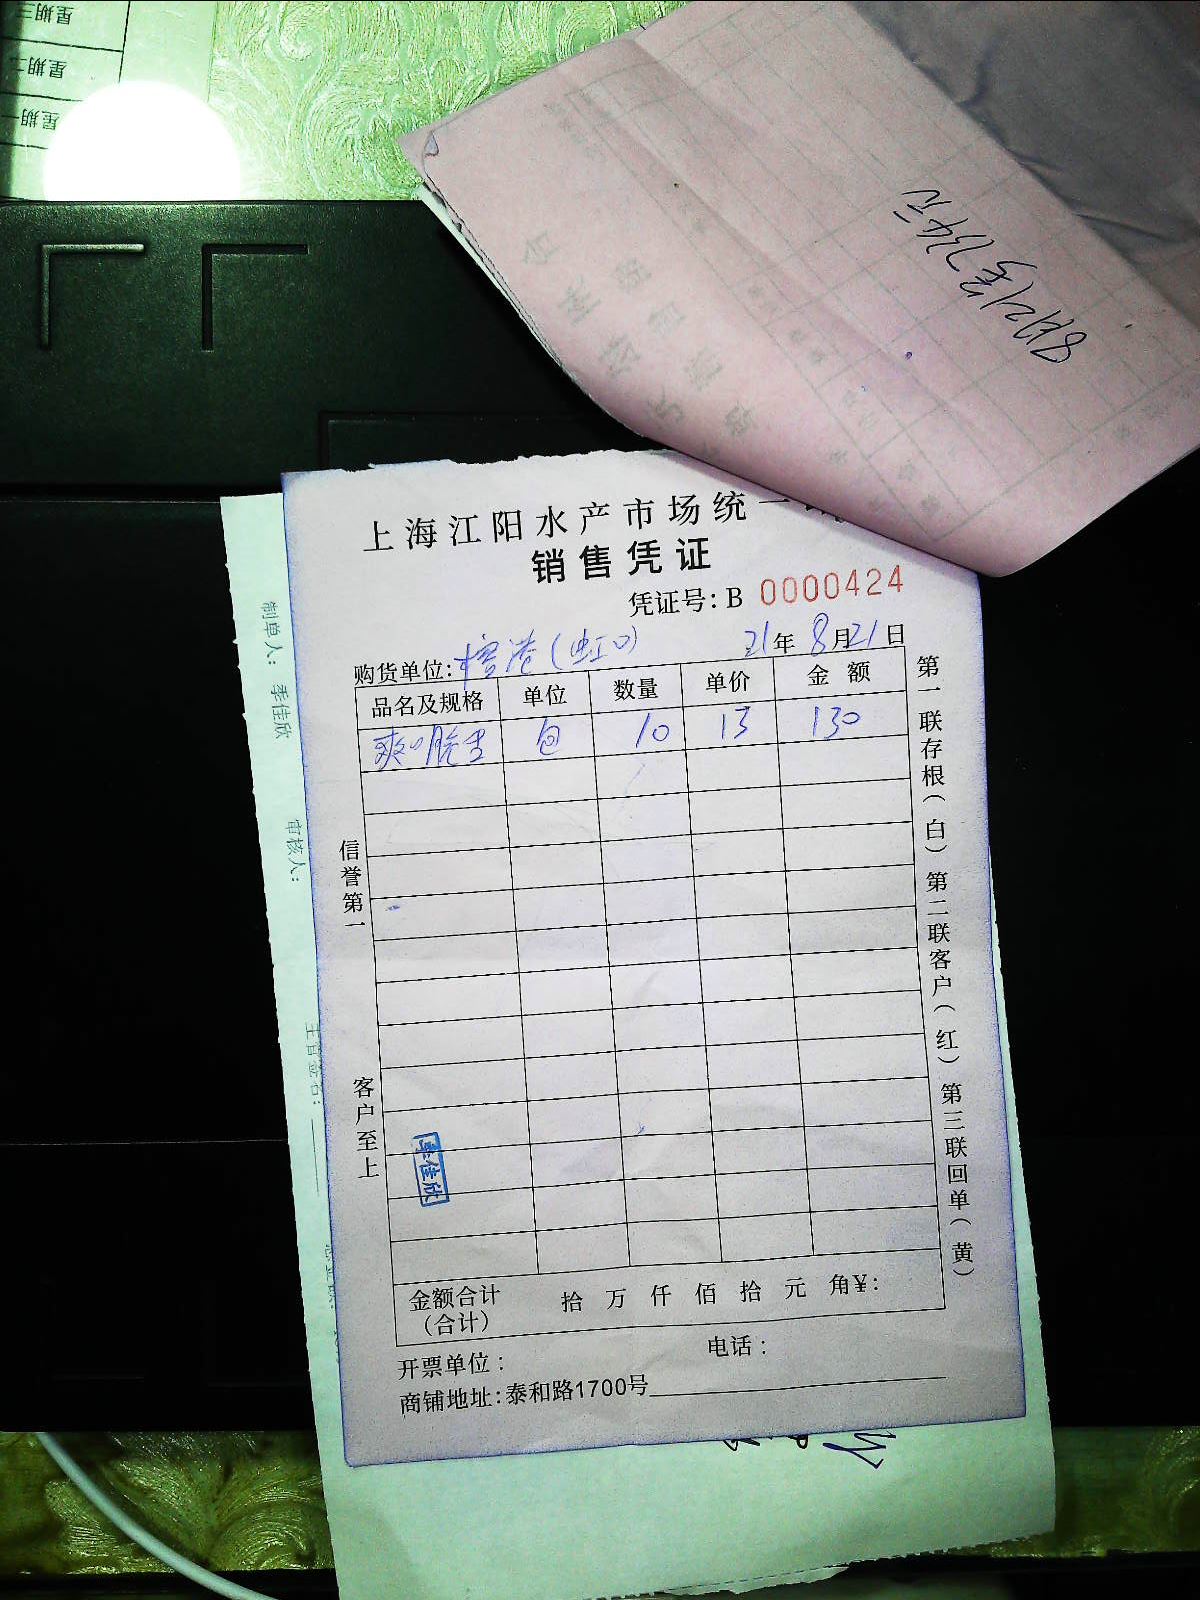 星期三
星期二
星期一
8月21号734元
上海江阳水产市场统一
销售凭证
凭证号: B 0000424
购货单位: 港(虹口) 21年8月21日
品名及规格 单位 数量 单价 金额
爽口脆 包 10 13 130
信誉第一
客户至上
第一联存根(白) 第二联客户(红) 第三联回单(黄)
李佳欣
金额合计 拾 万 仟 佰 拾 元 角¥:
(合计)
开票单位: 电话:
商铺地址:泰和路1700号
制单人: 季佳欣
审核人:
主管签名: